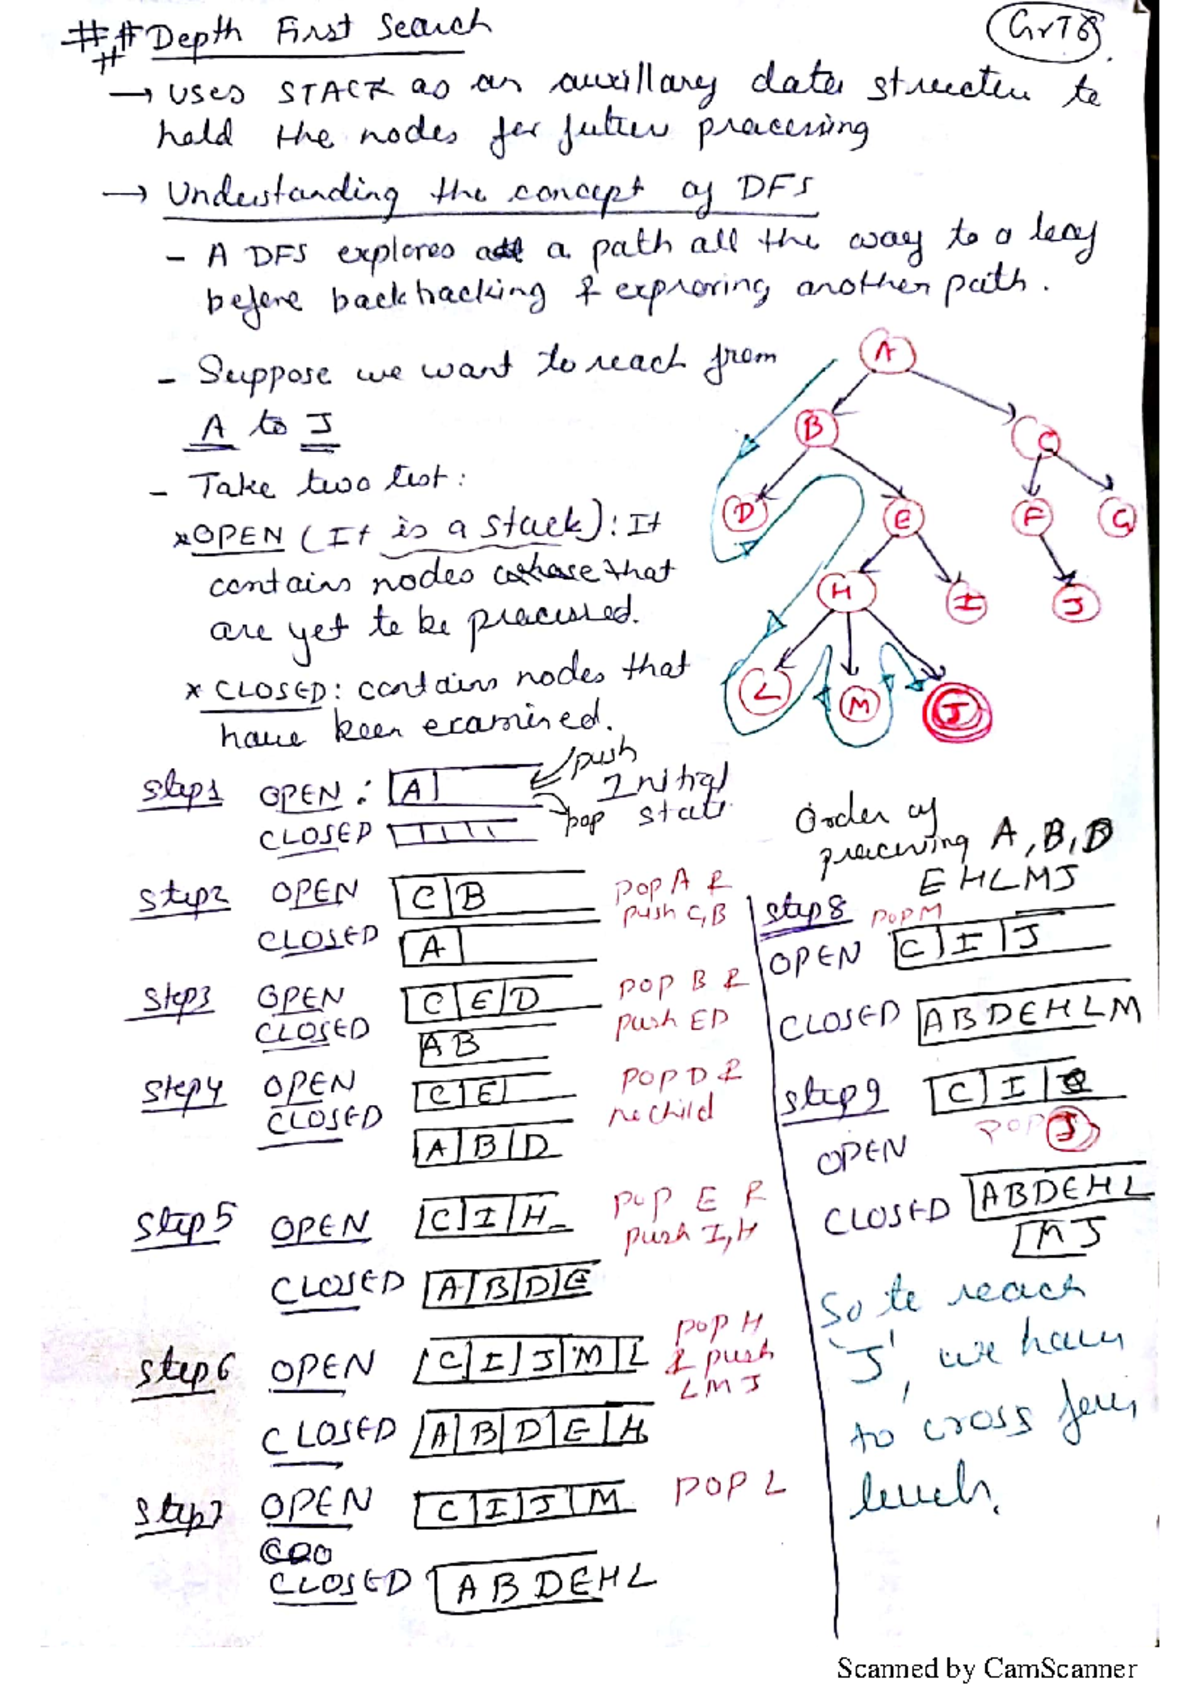 ## Depth First Search
GrT8
→ uses STACK as an auxillary data structure to
hold the nodes for future processing
→ Understanding the concept of DFS
- A DFS explores a path all the way to a leaf
before backtracking & exproring another path.
- Suppose we want to reach from
A to J
- Take two list:
* OPEN (It is a stack): It
contains nodes that
are yet to be processed.
* CLOSED: contains nodes that
have been examined.
A
B
C
D
E
F
G
H
I
J
L
M
J
Step1 OPEN : A
push
Initial
CLOSED
pop state
Step2 OPEN C B
pop A &
push C,B
CLOSED A
Step3 OPEN C E D
pop B &
CLOSED A B
push ED
Step4 OPEN C E
POP D &
CLOSED A B D
no child
Step5 OPEN C I H
pop E &
push I,H
CLOSED A B D E
Step6 OPEN C I J M L
pop H
& push
L M J
CLOSED A B D E H
Step7 OPEN C I J M
POP L
CLOSED A B D E H L
Order of
processing A, B, D
E H L M J
Step8 POP M
OPEN C I J
CLOSED A B D E H L M
Step9 C I
OPEN POP J
CLOSED A B D E H L
M J
So to reach
'J', we have
to cross four
levels.
Scanned by CamScanner